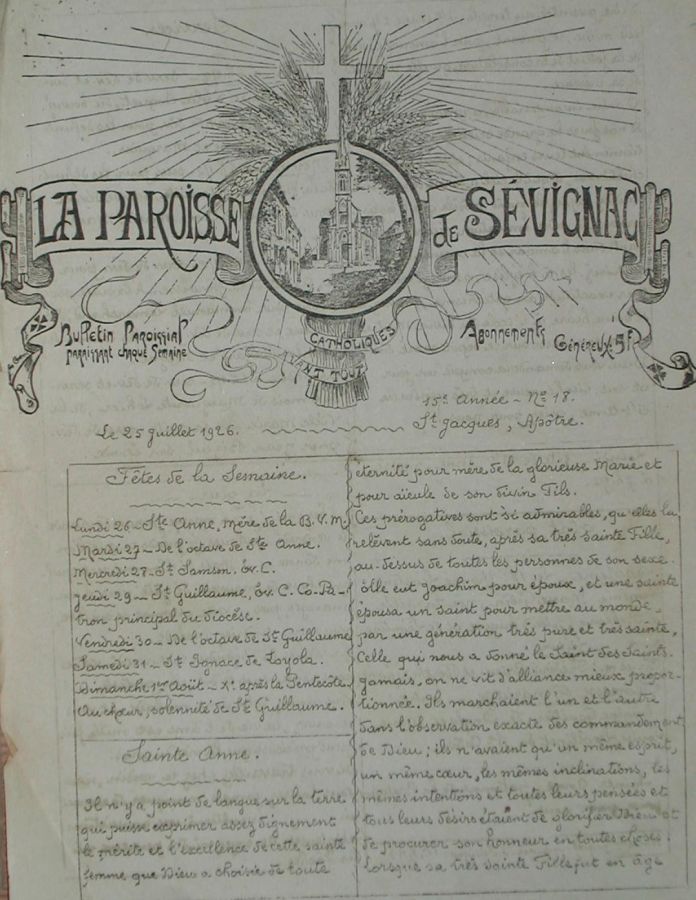 LA PAROISSE de SÉVIGNAC
Bulletin Paroissial
paraissant chaque Semaine
CATHOLIQUES
AVANT TOUT
Abonnements Généreux: 5F.
15e Année - No 18.
Le 25 Juillet 1926.
St Jacques, Apôtre.
Fêtes de la Semaine.
Lundi 26 - Ste Anne, Mère de la B.V.M.
Mardi 27 - De l'octave de Ste Anne.
Mercredi 28 - St Samson. Ev. C.
Jeudi 29 - St Guillaume, Ev. C. Co-Pa-
tron principal du diocèse.
Vendredi 30 - De l'octave de St Guillaume
Samedi 31 - St Ignace de Loyola.
Dimanche 1er Août - Xe après la Pentecôte.
Au chœur, solennité de St Guillaume.
Sainte Anne.
Il n'y a point de langue sur la terre
qui puisse exprimer assez dignement
le mérite et l'excellence de cette sainte
femme que Dieu a choisie de toute
éternité pour mère de la glorieuse Marie et
pour aïeule de son divin Fils.
Ces prérogatives sont si admirables, qu'elles la
relèvent sans doute, après sa très sainte Fille,
au-dessus de toutes les personnes de son sexe.
Elle eut Joachim pour époux, et une sainte
épousa un saint pour mettre au monde
par une génération très pure et très sainte,
Celle qui nous a donné le Saint des Saints.
Jamais, on ne vit d'alliance mieux propor-
tionnée. Ils marchaient l'un et l'autre
dans l'observation exacte des commandements
de Dieu; ils n'avaient qu'un même esprit,
un même cœur, les mêmes inclinations, les
mêmes intentions et toutes leurs pensées et
tous leurs désirs étaient de glorifier Dieu et
de procurer son honneur en toutes choses.
Lorsque sa très sainte Fille fut en âge